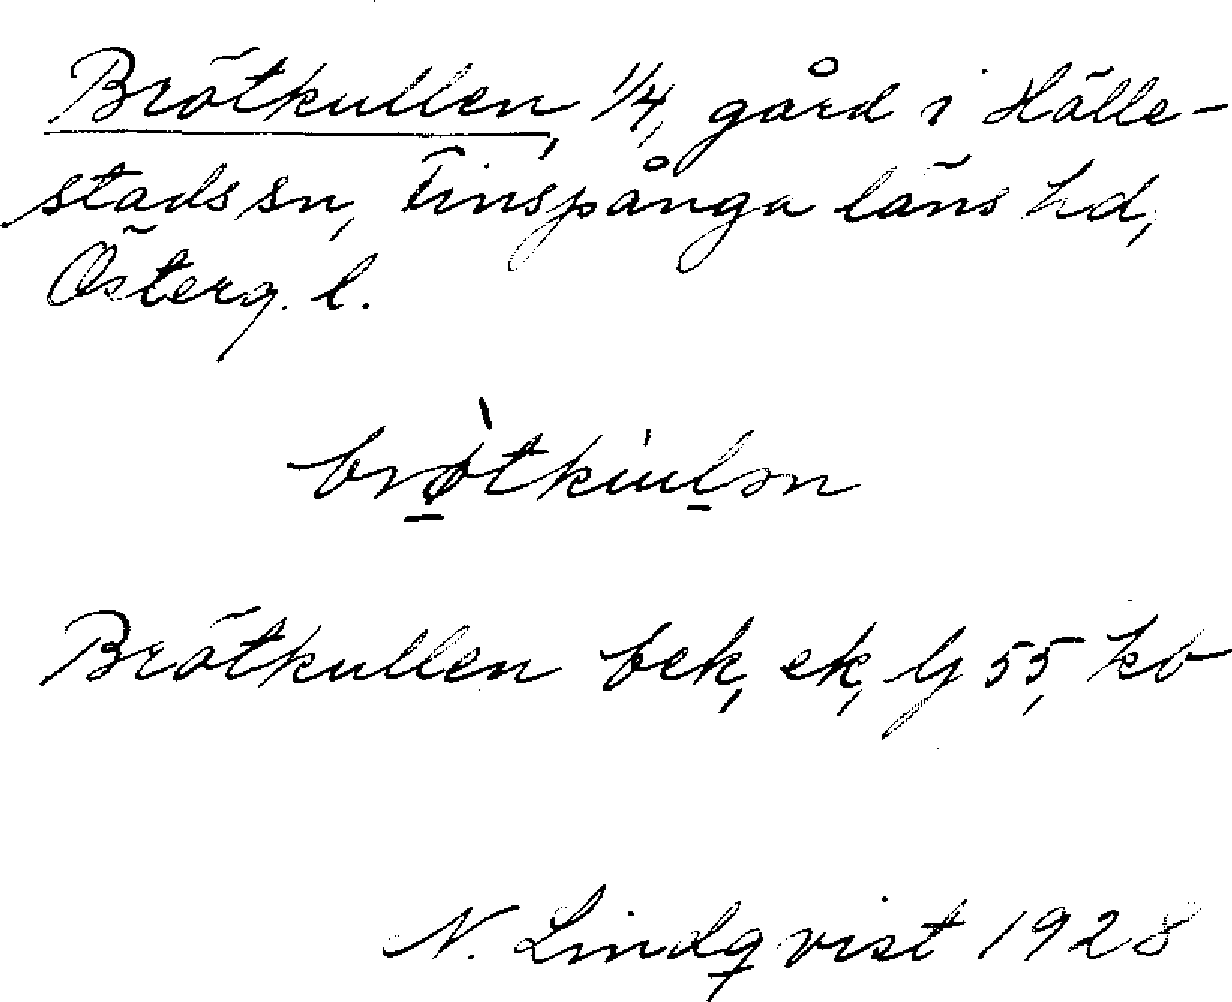 Brötkullen, 1/4, gård i Hälle-
stads sn, Finspånga läns hd,
Österg. l.
brø̲̀tkúl̲ən
Brötkullen bek, ek, Gj 55, kb
N. Lindqvist 1928